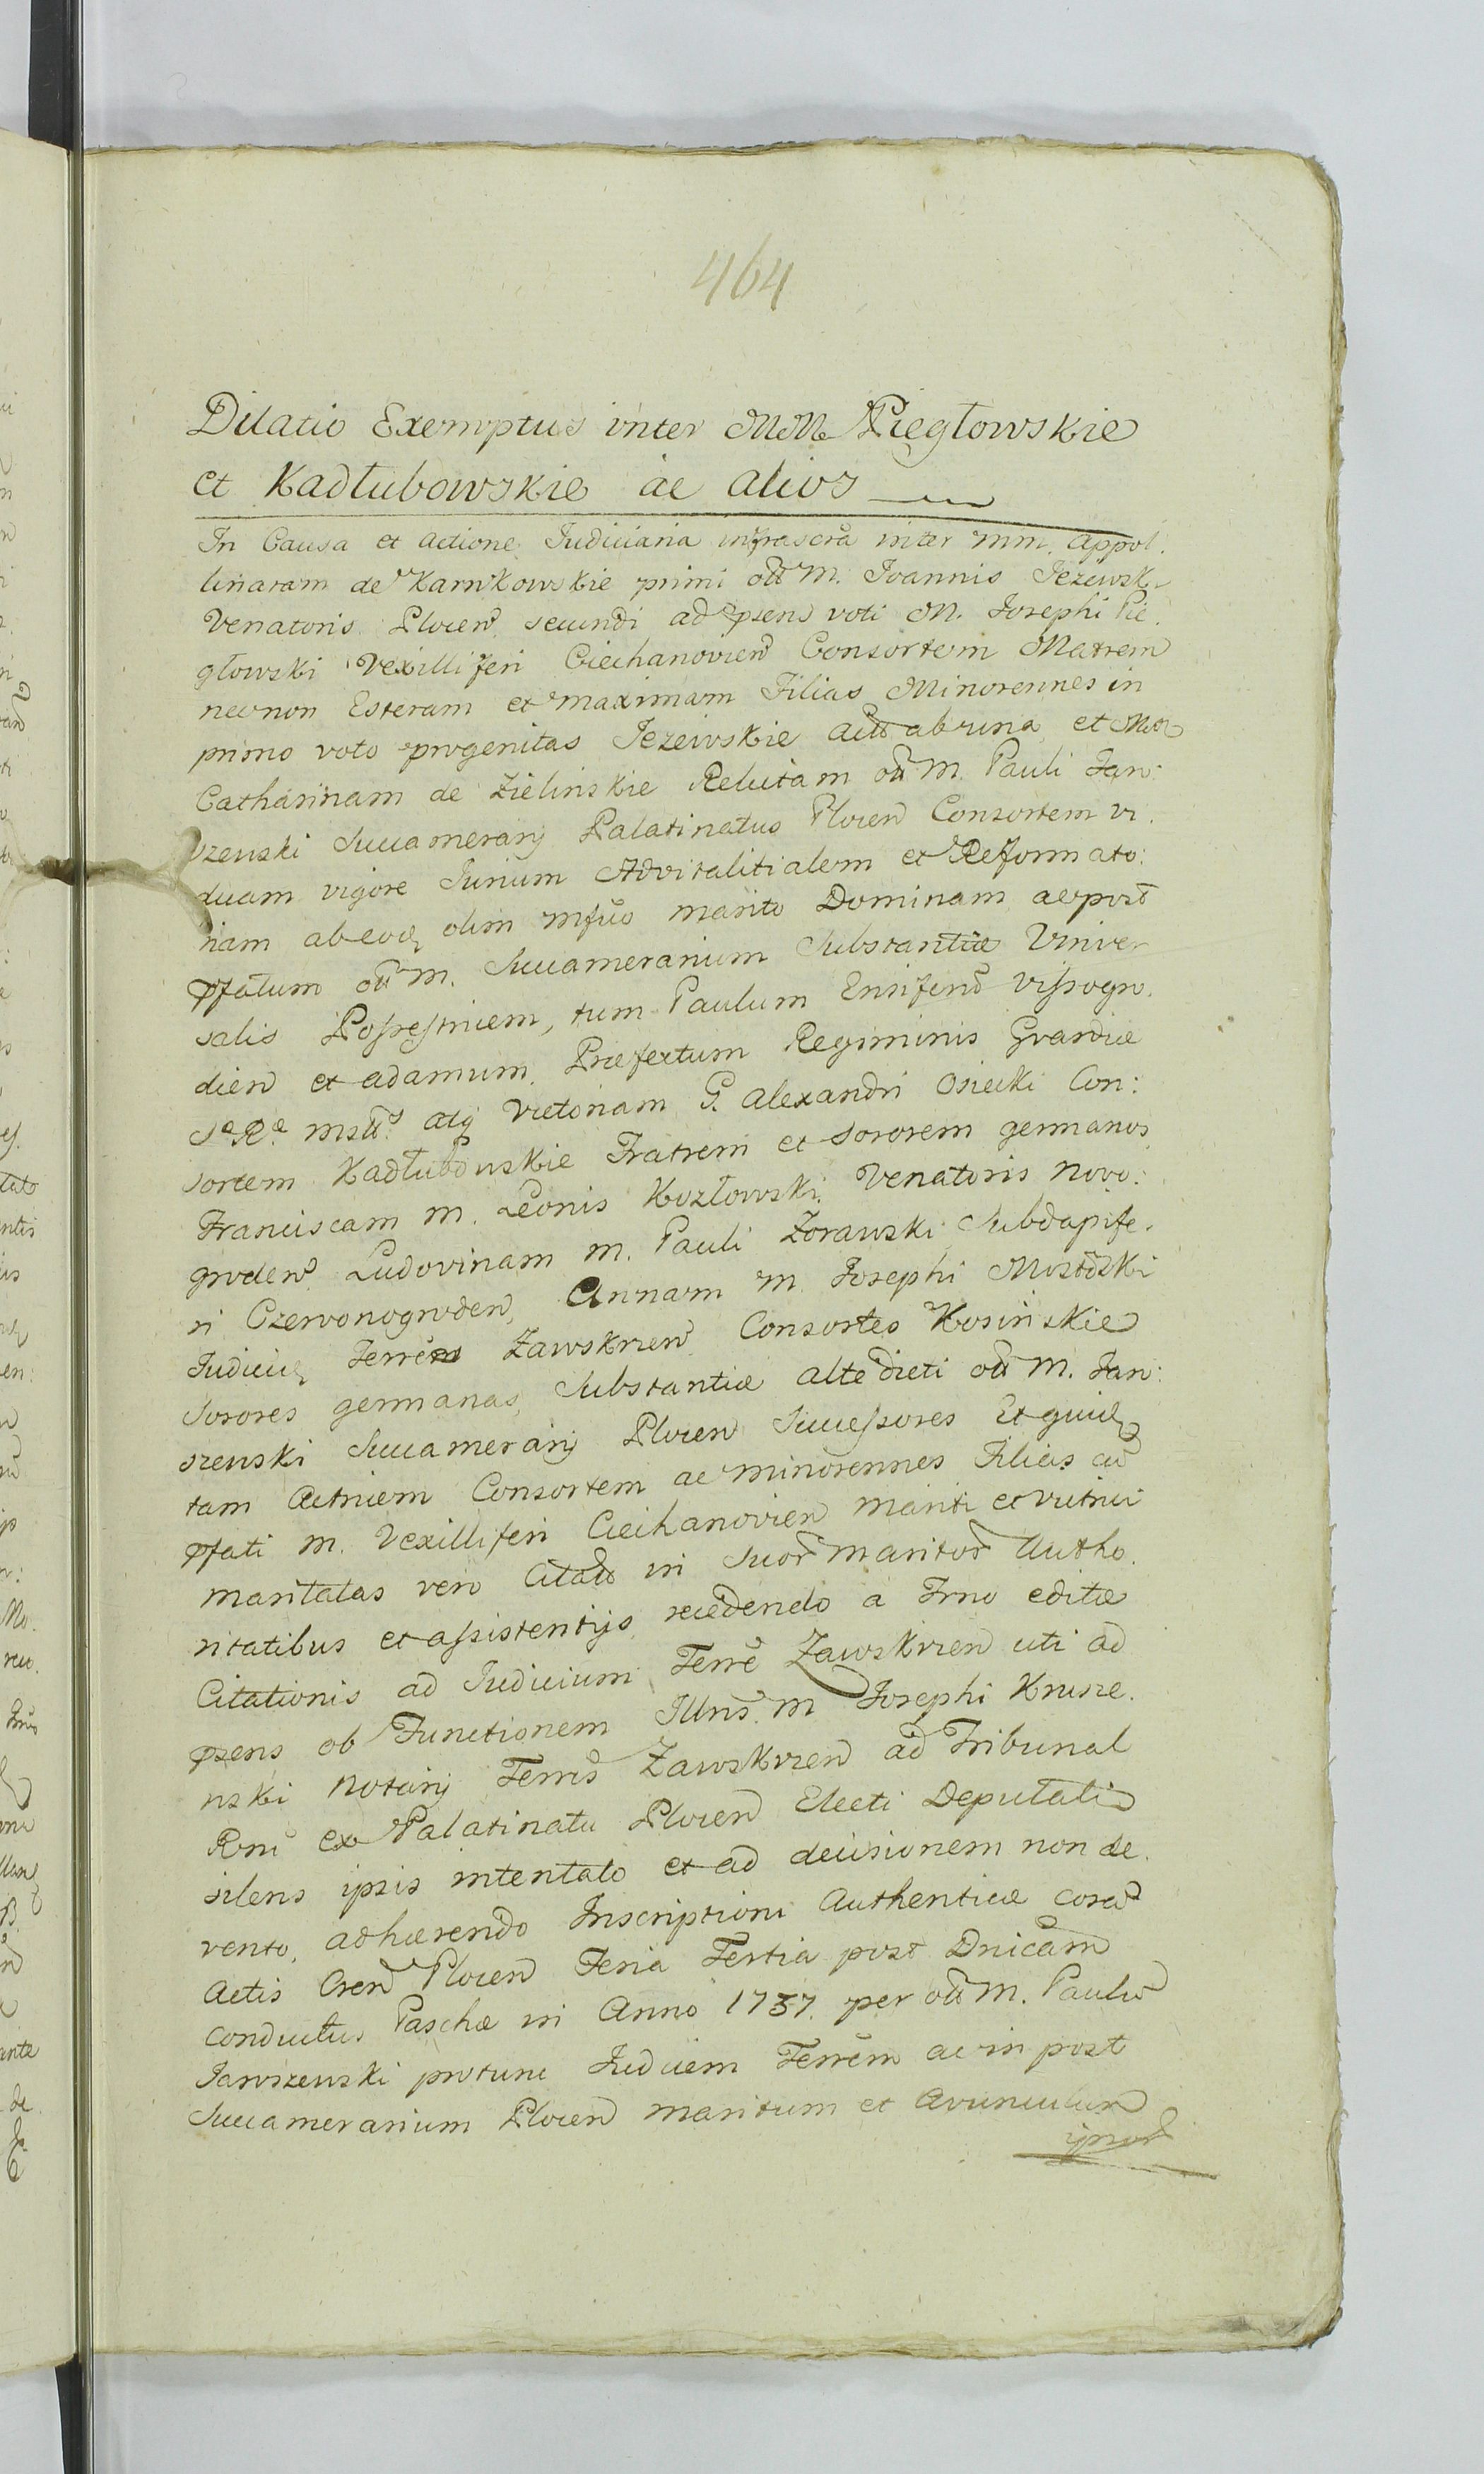 464
Dilatio Exemptus inter MM Pięgłowskie
et Kadłubowskie ac alios
In Causa et Actione Judiciaria infrascra inter mm. Appol.
linaram de Karnkowskie primi ott M. Joannis Jezewski
Venatoris Plocen secundi ad psens voti M. Josephi Pię.
głowski Vexilliferi Ciechanovien Consortem Matrem
necnon Esteram et maximam Filias Minorennes in
primo voto progenitas Jezewskie actt ab una et
Catharinam de Zielinskie Relictam ott M. Pauli Jaro:
szewski Succamerarij Palatinatus Plocen Consortem vi.
duam vigore Jurium Advitalitialem et Reformato:
riam ab eodq olim mfuo marito Dominam ac post
pfatum ott M. Succamerarium Substantiæ Univer
salis Possessricem, tum Paulum Ensiferū Vissogro.
dien et Adamum Præfectum Regiminis Gvardiæ
atq Victoriam G. Alexandri Osiecki Con:
sortem Kadłubowskie Fratrem et Sororem germanos
Franciscam M. Leonis Kozłowski Venatoris Novo:
groden Ludovinam M. Pauli Zorawski Subdapife.
ri Czerwonogroden, Annam M. Josephi Mostowski
Judicis Terrēs Zawskrzen Consortes Kosinskie
Sorores germanas, Substantiæ alte dicti ott M. Jaro:
szewski Succamerarij Plocen Successores Et quidq
tam Actricem Consortem ac minorennes Filias cū
pfati M. Vexilliferi Ciechanovien mariti et vitrici
maritatas vero Citatt in Suor maritor Autho.
ritatibus et assistentijs, recedendo a Frno editæ
Citationis ad Judicium Terrē Zawskrzen uti ad
psens ob Functionem Illris M Josephi Krusze.
wski Notarij Terrēs Zawskrzen ad Tribunal
Rni ex Palatinatu Plocen Electi Deputati
silens ipsis intentato et ad decisionem non de.
vento, adhærendo Inscriptioni Authenticæ corā
Actis Cren Plocen Feria Tertia post Dnicam
Conductus Paschæ in Anno 1737. per ott M. Paulū
Jaroszewski protunc Judicem Terrēm ac in post
Succamerarium Plocen maritum et Avunculum
ipsor